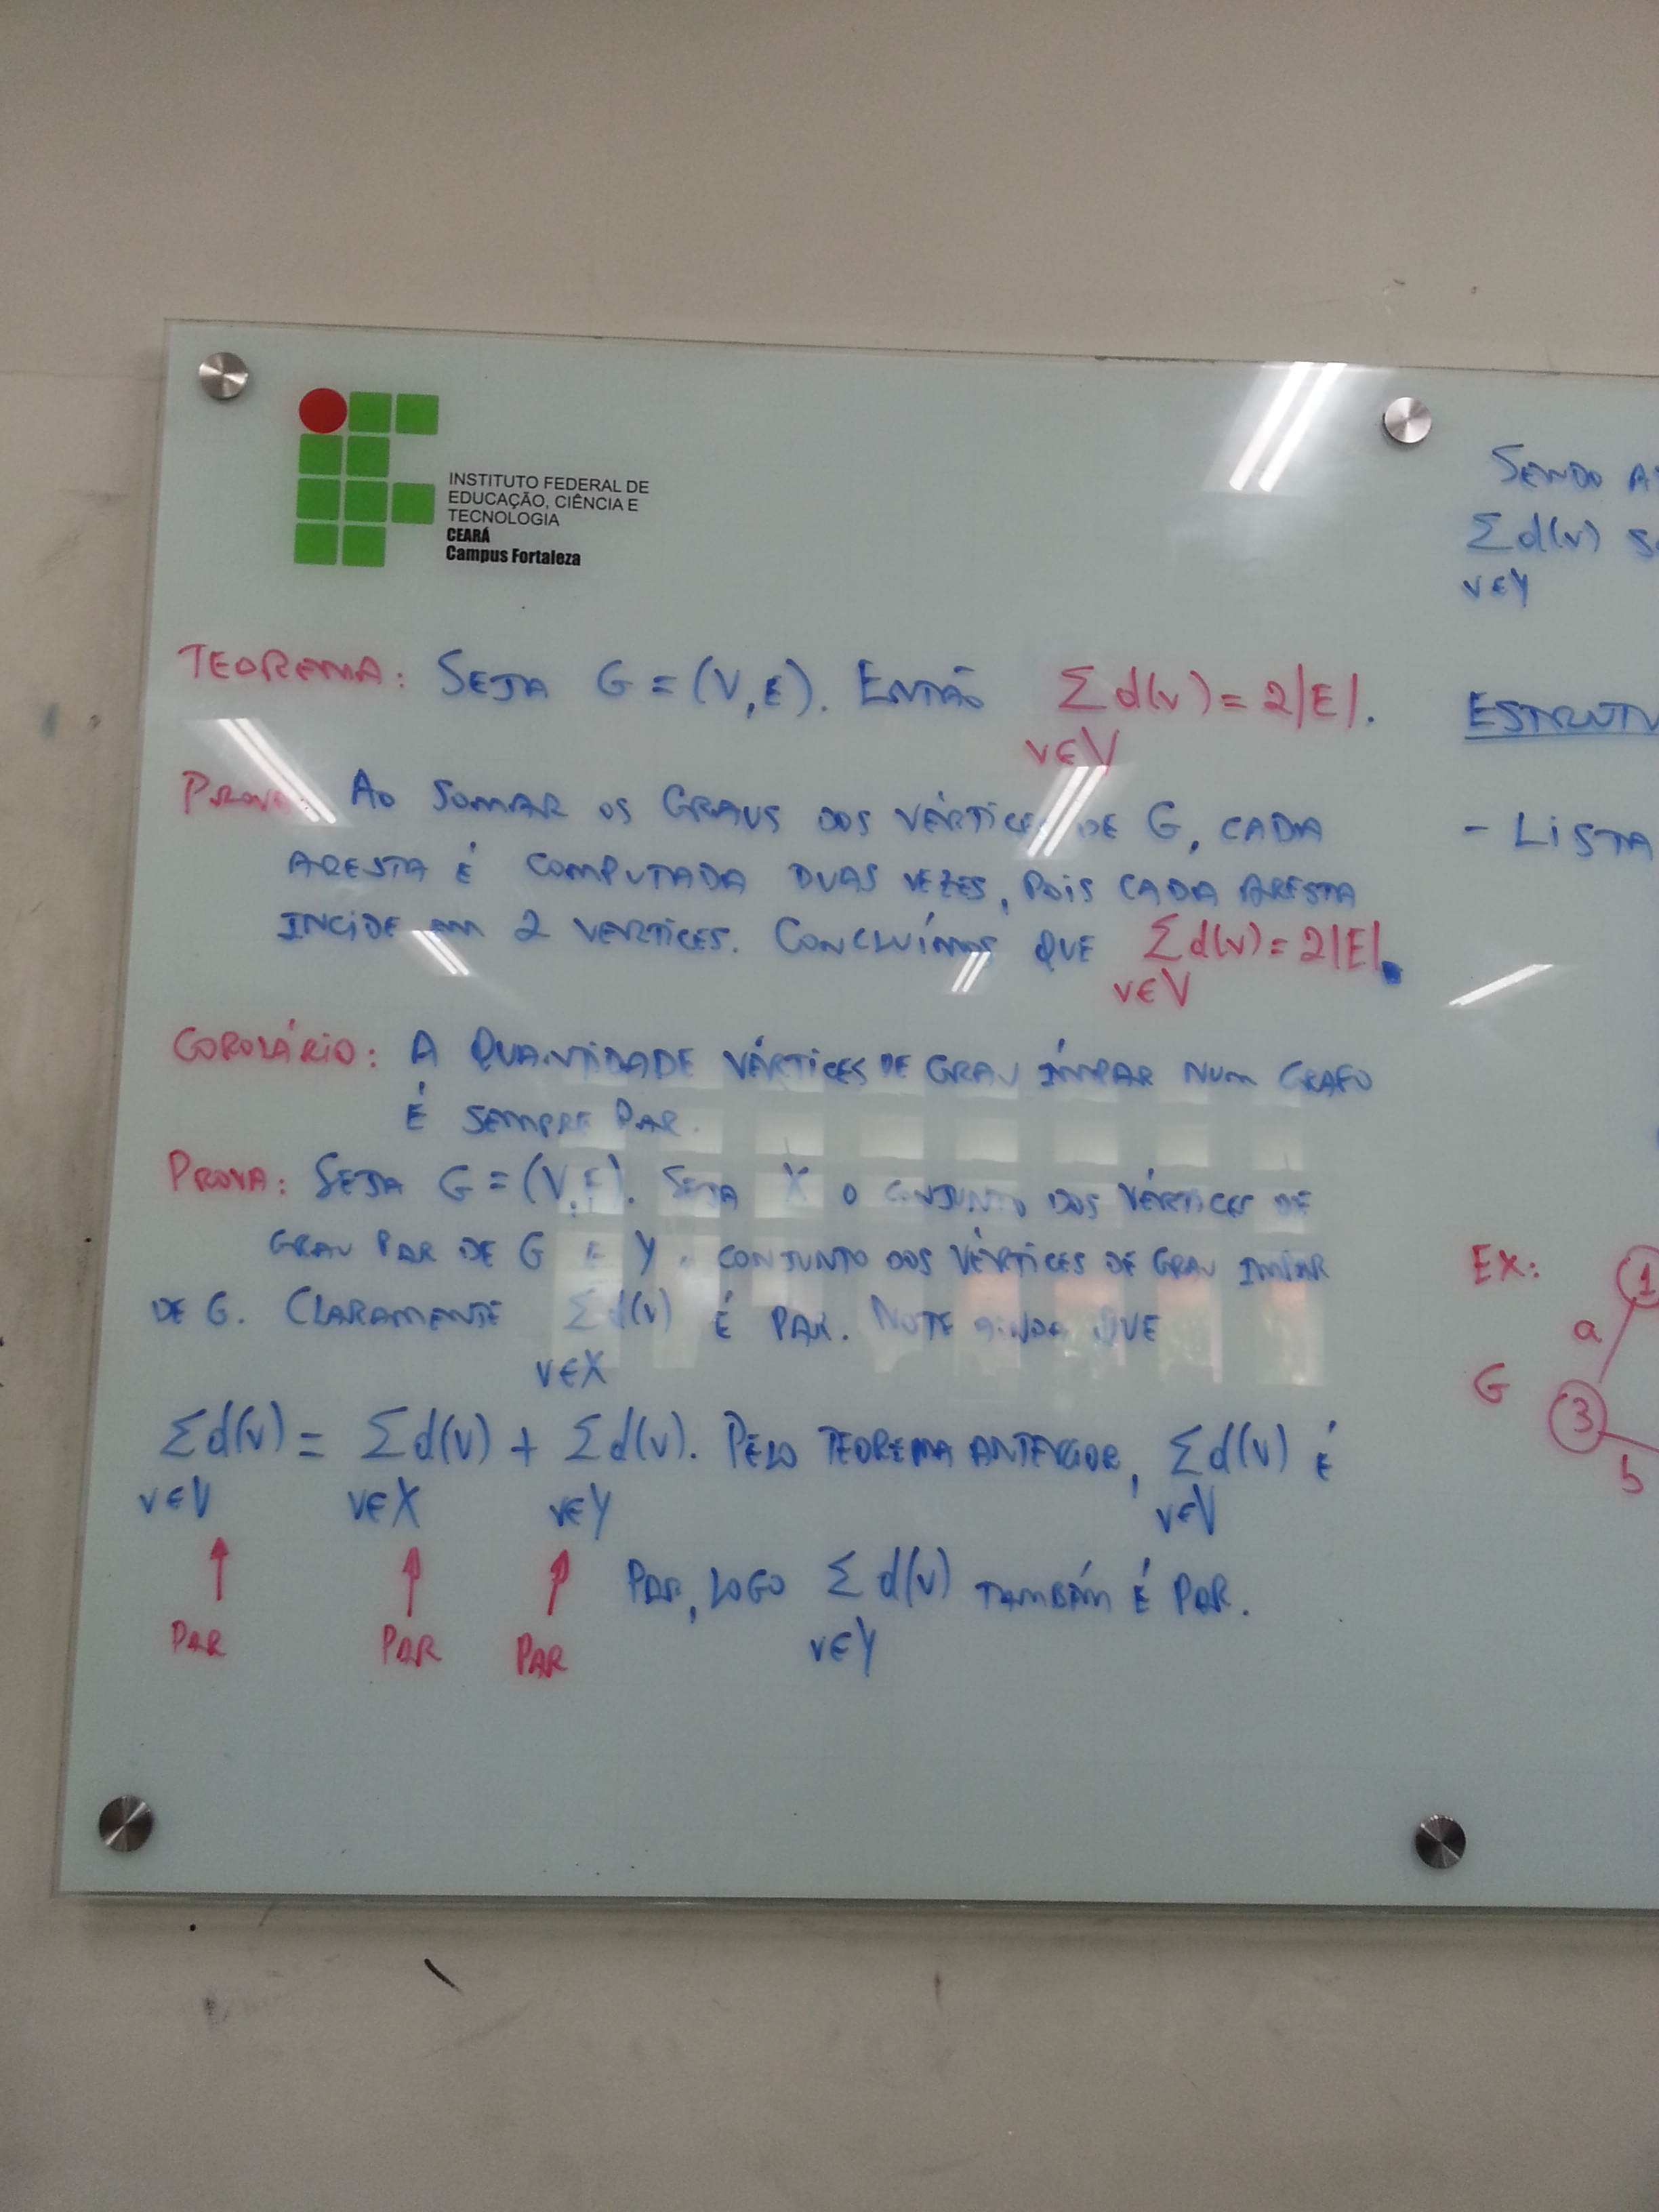 INSTITUTO FEDERAL DE
EDUCAÇÃO, CIÊNCIA E
TECNOLOGIA
CEARÁ
Campus Fortaleza
TEOREMA: SEJA G = (V, E). ENTÃO Σ d(v) = 2|E|.
v∈V
PROVA: AO SOMAR OS GRAUS DOS VÉRTICES DE G, CADA
ARESTA É COMPUTADA DUAS VEZES, POIS CADA ARESTA
INCIDE EM 2 VERTICES. CONCLUÍMOS QUE Σ d(v) = 2|E|.
v∈V
COROLÁRIO: A QUANTIDADE VÉRTICES DE GRAU ÍMPAR NUM GRAFO
É SEMPRE PAR.
PROVA: SEJA G = (V, E). SEJA X O CONJUNTO DOS VÉRTICES DE
GRAU PAR DE G E Y O CONJUNTO DOS VÉRTICES DE GRAU IMPAR
DE G. CLARAMENTE Σ d(v) É PAR. NOTE AINDA QUE
v∈X
Σ d(v) = Σ d(v) + Σ d(v). PELO TEOREMA ANTERIOR, Σ d(v) É
v∈V v∈X v∈Y v∈V
PAR, LOGO Σ d(v) TAMBÉM É PAR.
v∈Y
PAR PAR PAR
SENDO
Σ d(v)
v∈Y
- LISTA
EX: 1
a
G 3
b